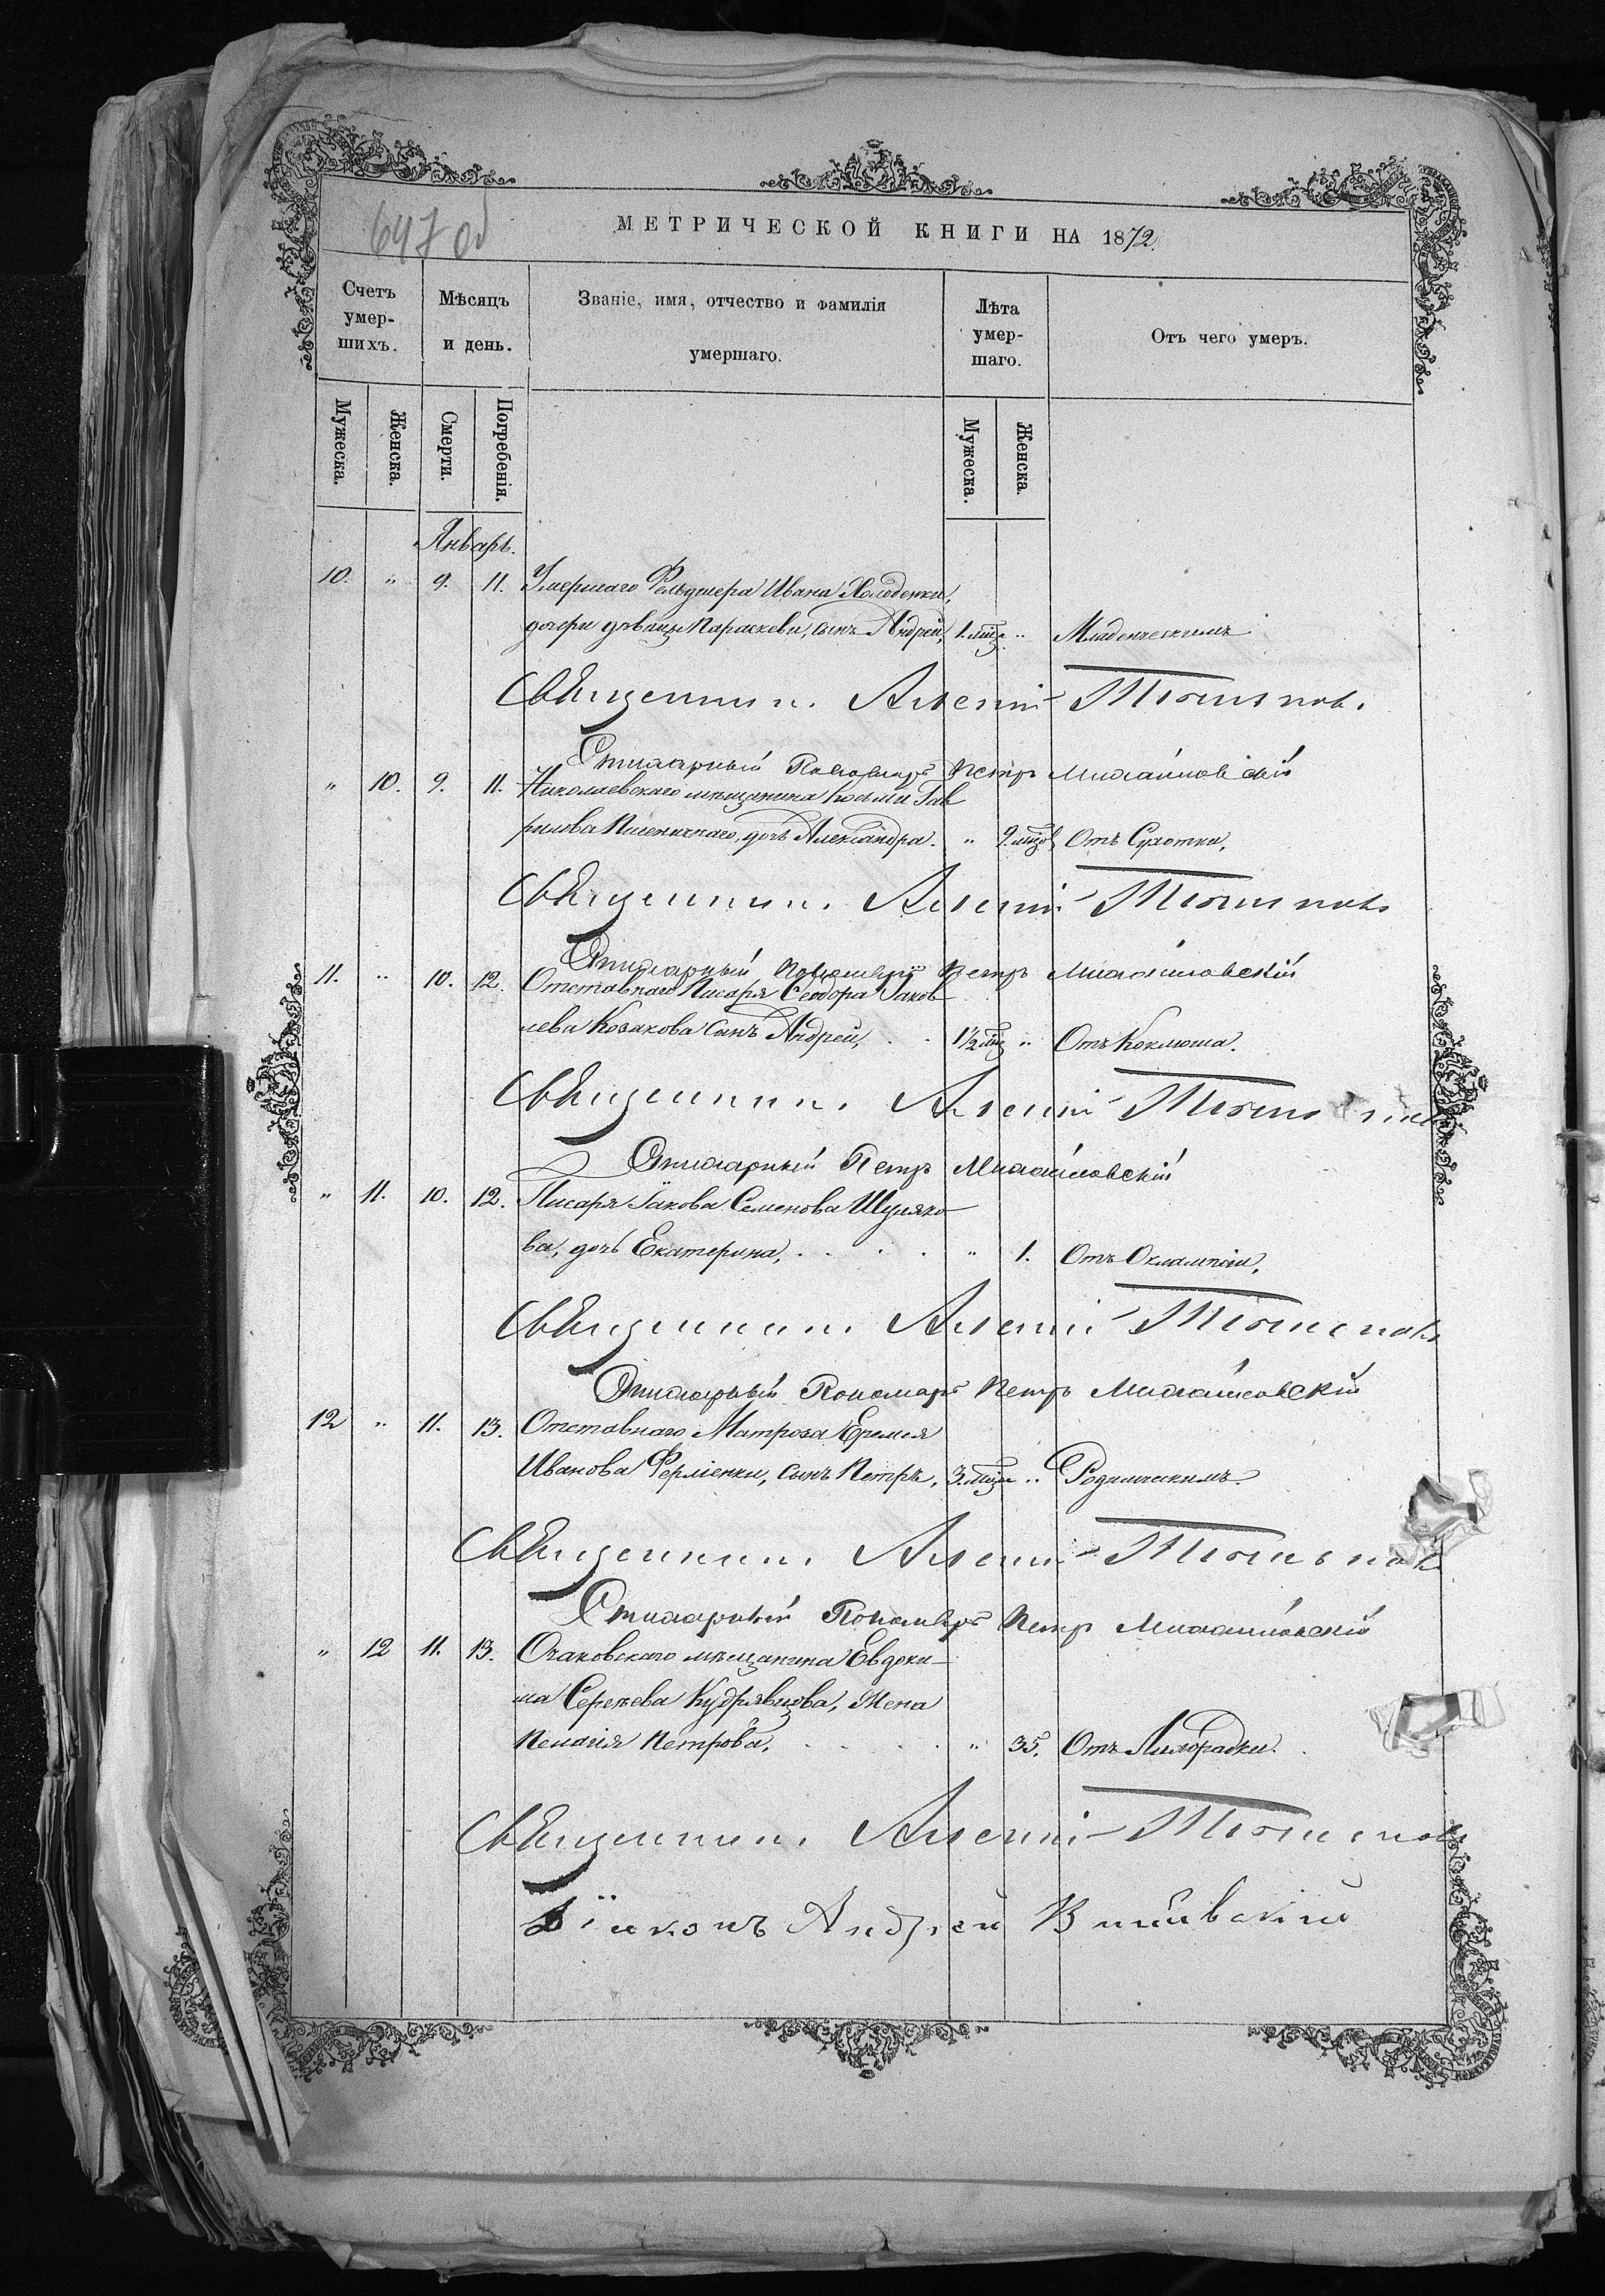 647 об
МЕТРИЧЕСКОЙ КНИГИ НА 1872.
Счетъ умер-шихъ.
Мѣсяцъ и день.
Званіе, имя, отчество и фамилія умершаго.
Лѣта умер-шаго.
Отъ чего умеръ.
Мужеска. Женска. Смерти. Погребенія. Мужеска. Женска.
Январь.
10. " 9. 11. Умершаго Фельдшера Ивана Холоденки,
дочери дѣвицы Параскевы, сынъ Андрей, 1. мѣс. " Младенческимъ
Священник Арсеній
Стихарный Пономарь Петръ Михайловскій
" 10. 9. 11. Николаевскаго мѣщанина Косьмы Гав
рилова Пшеничнаго, дочь Александра. " 9. мѣс. Отъ Сухотки,
Священник Арсеній
Стихарный Пономарь Петръ Михайловскій
11. " 10. 12. Отставнаго Писаря Ѳеодора Іаков
лева Козакова сынъ Андрей, 1 1/2 мѣс " Отъ Коклюша.
Священник Арсеній
Стихарный Петръ Михайловскій
" 11. 10. 12. Писаря Іакова Семенова Шуляко
ва, дочь Екатерина, " 1. Отъ Оклампсіи,
Священник Арсеній
Стихарный Пономарь Петръ Михайловскій
12 " 11. 13. Отставнаго Матроза Еремея
Иванова сынъ Петръ, 3. мѣс " Родимческимъ
Священник Арсеній
Стихарный Пономарь Петръ Михайловскій
" 12 11. 13. Очаковскаго мѣщанина Евдоки-
ма Сергѣева Кудрявцова, Жена
Пелагія Петрова, " 35. Отъ Лихорадки.
Священник Арсеній
Діяконъ Андрей